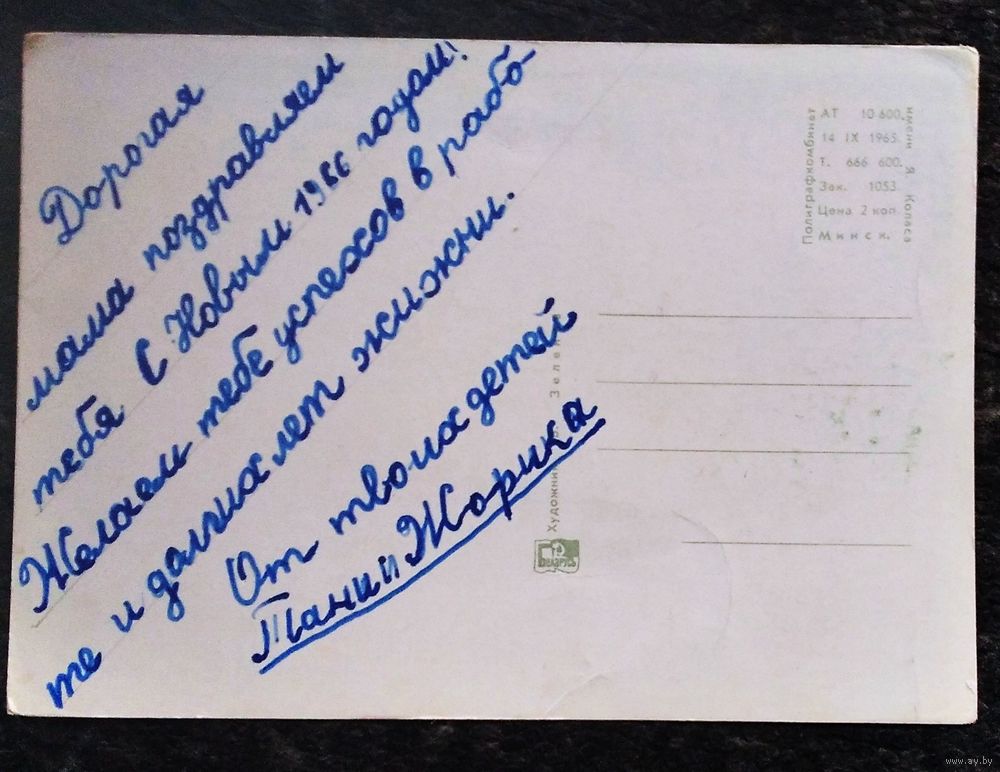 Дорогая
мама поздравляем
тебя С Новым 1966 годом!
Желаем тебе успехов в рабо-
те и долгих лет жижни.
От твоих детей
Тани и Жорика
Полиграфкомбинат
имени Я. Коласа
АТ 10 600.
14 IX 1965.
Т. 666 600.
Зак. 1053.
Цена 2 коп.
Минск.
БЕЛАРУСЬ
www.ay.by